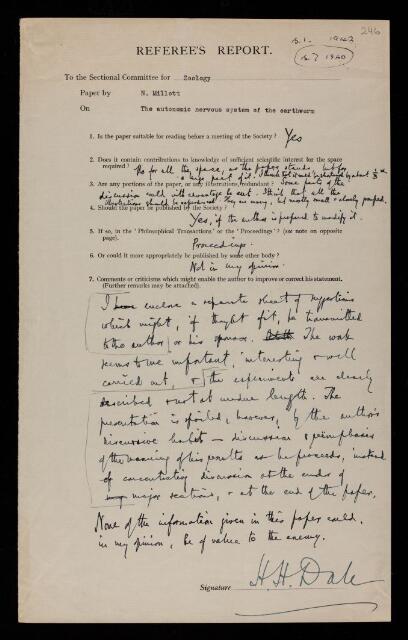 246
S.1. 1942
S.7 1940
REFEREE'S REPORT.
To the Sectional Committee for Zoology
Paper by N. Millott
On The autonomic nervous system of the earthworm
1. Is the paper suitable for reading before a meeting of the Society? Yes
2. Does it contain contributions to knowledge of sufficient scientific interest for the space
required? for all the space, as the paper stands, but for
a great part of it. I think it could be shortened by about
3. Are any portions of the paper, or any illustrations, redundant? Some parts of the
discussion could with advantage be cut. I think that all the
illustrations should be reproduced. They are many, but mostly small & closely grouped.
4. Should the paper be published by the Society?
Yes, if the author is prepared to modify it.
5. If so, in the 'Philosophical Transactions' or the 'Proceedings'? (see note on opposite
page).
Proceedings.
6. Or could it more appropriately be published by some other body?
Not in my opinion.
7. Comments or criticisms which might enable the author to improve or correct his statement.
(Further remarks may be attached).
I enclose a separate sheet of suggestions
which might, if thought fit, be transmitted
to the author, or his sponsor. The work
seems to me important, interesting & well
carried out, & the experiments are clearly
described & not at undue length. The
presentation is spoiled, however, by the author's
discursive habit — discussion & periphrases
of the meaning of his results as he proceeds, instead
of concentrating discussion at the ends of
major sections, & at the end of the paper.
None of the information given in this paper could,
in my opinion, be of value to the enemy.
Signature H. H. Dale